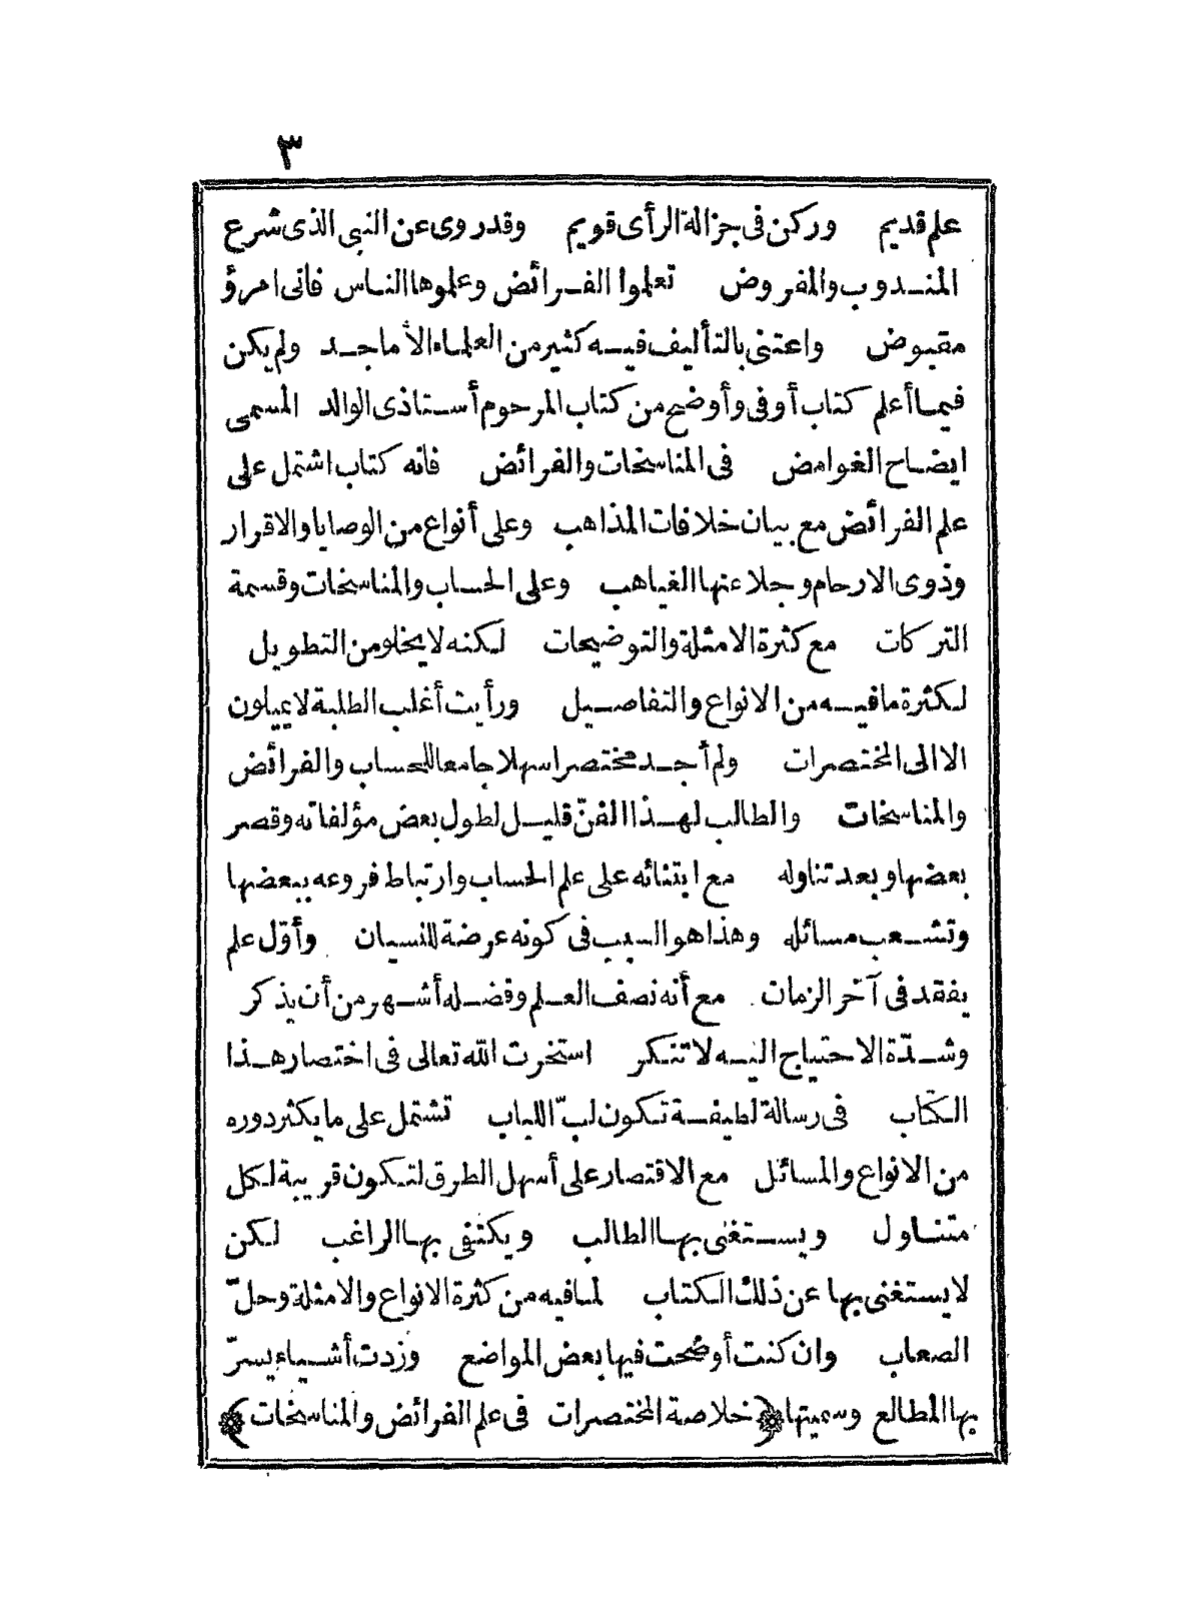 ٣
علم قديم وركن في جزالة الرأى قويم وقد روى عن النبي الذى شرع
المندوب والمفروض تعلموا الفرائض وعلموها الناس فانى امرؤ
مقبوض واعتنى بالتأليف فيه كثير من العلماء الأماجد ولم يكن
فيما أعلم كتاب أوفى وأوضح من كتاب المرحوم أستاذى الوالد المسمى
ايضاح الغوامض فى المناسخات والفرائض فانه كتاب اشتمل على
علم الفرائض مع بيان خلافات المذاهب وعلى أنواع من الوصايا والاقرار
وذوى الارحام وجلا عنها الغياهب وعلى الحساب والمناسخات وقسمة
التركات مع كثرة الامثلة والتوضيحات لكنه لا يخلو من التطويل
لكثرة ما فيه من الانواع والتفاصيل ورأيت أغلب الطلبة لا يميلون
الا الى المختصرات ولم أجد مختصرا سهلا جامعا للحساب والفرائض
والمناسخات والطالب لهذا الفنّ قليل لطول بعض مؤلفاته وقصر
بعضها وبعد تناوله مع ابتنائه على علم الحساب وارتباط فروعه ببعضها
وتشعب مسائله وهذا هو السبب فى كونه عرضة للنسيان وأوّل علم
يفقد فى آخر الزمان مع أنه نصف العلم وفضله أشهر من أن يذكر
وشدّة الاحتياج اليه لا تنكر استخرت الله تعالى فى اختصار هذا
الكتاب فى رسالة لطيفة تكون لبّ اللباب تشتمل على ما يكثر دوره
من الانواع والمسائل مع الاقتصار على أسهل الطرق لتكون قريبة لكل
متناول ويستغنى بها الطالب ويكتفى بها الراغب لكن
لا يستغنى بها عن ذلك الكتاب لما فيه من كثرة الانواع والامثلة وحلّ
الصعاب وان كنت أوضحت فيها بعض المواضع وزدت أشياء يسرّ
بها المطالع وسميتها ﴿خلاصة المختصرات فى علم الفرائض والمناسخات﴾